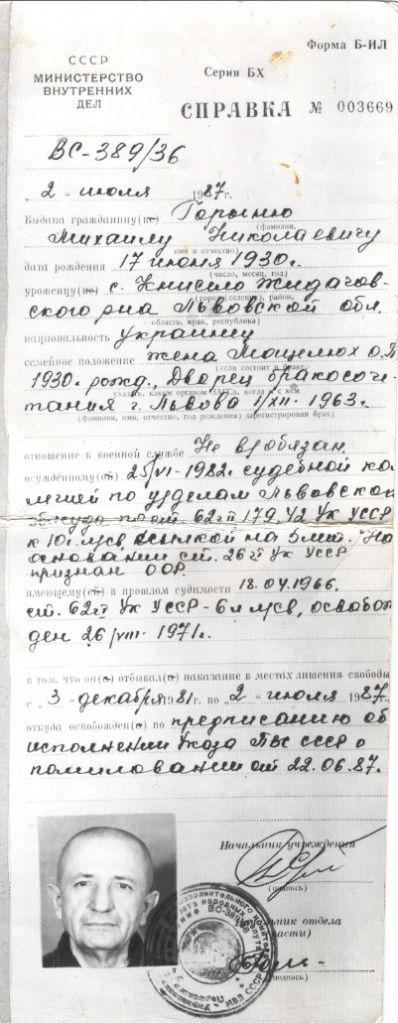 Форма Б-ИЛ
СССР
МИНИСТЕРСТВО
ВНУТРЕННИХ
ДЕЛ
Серия БХ
СПРАВКА № 003669
ВС-389/36
„2" июля 1987г.
Выдана гражданину(ке) Горыню
(фамилия,
Михаилу Николаевичу
имя и отчество)
дата рождения 17 июня 1930г.
(число, месяц, год)
уроженцу(ке) с. Книсело Жидачов-
(город, селение, район,
ского р-на Львовской обл.
область, край, республика)
национальность Украинец
семейное положение жена Мацелюх О.П.
(если состоит в браке,
1930г. рожд., Дворец бракосоче-
указать, каким органом ЗАГСа, когда и с кем
тания г. Львова 1/XII-1963г.
(фамилия, имя, отчество, год рождения) зарегистрирован брак)
отношение к военной службе Не в/обязан.
осуждённому(ой) 25/VI-1982г. судебной кол-
легией по уг/делам Львовского
облсуда по ст. 62 ч II 179, 42 УК УССР
к 10г. л/св ссылкой на 5 лет. На
основании ст. 26 УК УССР
признан ООР.
имеющему(ей) в прошлом судимости 18.04.1966.
ст. 62 ч II УК УССР - 6л л/св, освобож-
ден 26/VIII-1971г.
в том, что он(а) отбывал(а) наказание в местах лишения свободы
с „3" декабря 1981г. по „2" июля 1987г.
откуда освобожден(а) по предписанию об
исполнении Указа ПВС СССР о
помиловании от 22.06.87.
Начальник учреждения
(подпись)
Начальник отдела
(части)
(подпись)
ВС-389/36
МВД СССР